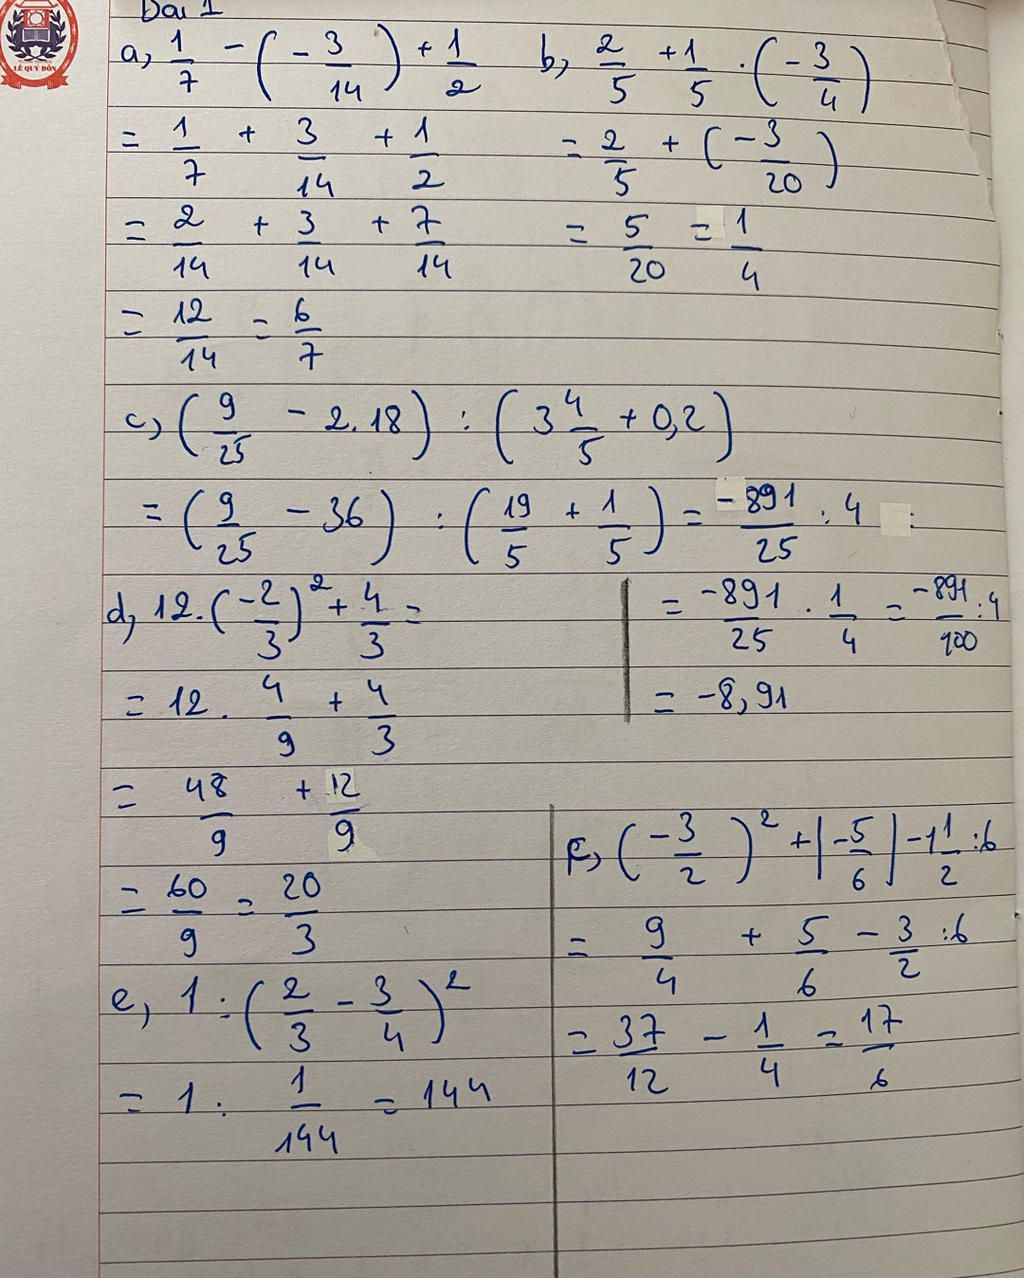 LÊ QUÝ ĐÔN
Bài 1
a, 1/7 - (-3/14) + 1/2
= 1/7 + 3/14 + 1/2
= 2/14 + 3/14 + 7/14
= 12/14 = 6/7
b, 2/5 + 1/5 . (-3/4)
= 2/5 + (-3/20)
= 5/20 = 1/4
c, (9/25 - 2.18) : (3 4/5 + 0,2)
= (9/25 - 36) : (19/5 + 1/5) = -891/25 : 4 :
= -891/25 . 1/4 = -891/100 : 4
= -8,91
d, 12.(-2/3)² + 4/3 =
= 12 . 4/9 + 4/3
= 48/9 + 12/9
= 60/9 = 20/3
e, 1 : (2/3 - 3/4)²
= 1 : 1/144 = 144
f, (-3/2)² + |-5/6| - 1 1/2 : 6
= 9/4 + 5/6 - 3/2 : 6
= 37/12 - 1/4 = 17/6